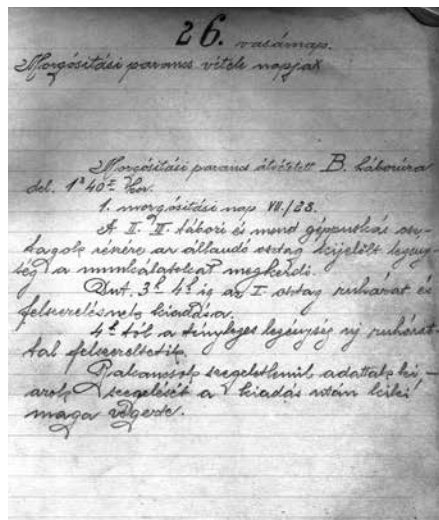 26. vasárnap.
Mozgósitási parancs vétele napja
Mozgósitási parancs átvétetett B. háborúra
del. 1ʰ 40ᵗ kor.
1. mozgósitási nap VII./28.
A II. III. tábori és menet géppuskás osz-
tagok részére az állandó osztag kijelölt legény-
ség a munkálatokat megkezdi.
Dut. 3ʰ 4ʰ is az I. osztag ruházat és
felszerelésnek kiadása.
4ʰ tól a tényleges legénység új ruházat
tal felszereltetik.
Bakancsok szegeletlenül adattak ki -
azok szegelését a kiadás után kiki
maga végezte.